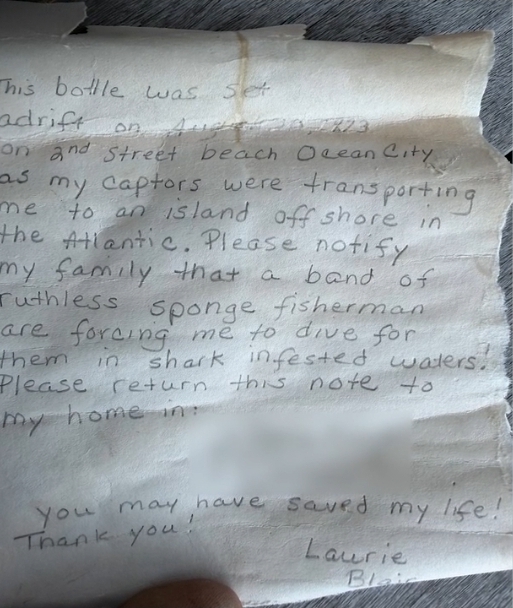 This bottle was set
adrift on
on 2nd street beach Ocean City
as my captors were transporting
me to an island off shore in
the Atlantic. Please notify
my family that a band of
ruthless sponge fisherman
are forcing me to dive for
them in shark infested waters!
Please return this note to
my home in:
you may have saved my life!
Thank you!
Laurie
Blair